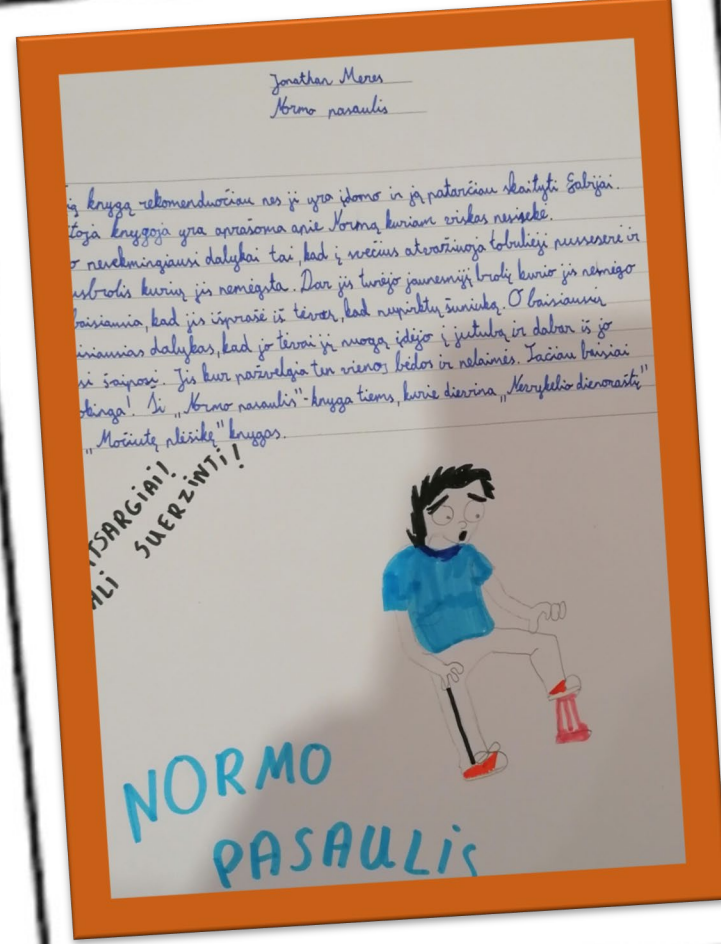 Jonathan Meres
Normo pasaulis
ią knygą rekomenduočiau nes ji yra įdomo ir ją patarčiau skaityti Gabijai.
toja knygoja yra aprašoma apie Normą kuriam viskas nesisekė.
o nesekmingiausi dalykai tai, kad į svečius atvažiuoja tobulieji pussesere ir
usbrolis kurių jis nemėgsta. Dar jis turėjo jaunesnįjį brolį kurio jis nemėgo
baisiausia, kad jis išprašė iš tėvor, kad nupirktų šuniuką. O baisiausių
isiausias dalykas, kad jo tėvai jį nuogą įdėjo į jutubą ir dabar iš jo
si šaiposi. Jis kur pažvelgia ten vienos bėdos ir nelaimės. Tačiau baisiai
okinga! Ši „Normo pasaulis"-knyga tiems, kurie dievina „Nevykėlio dienoraštį"
„Močiutę plėšikę" knygas.
TSARGIAI!
ALI SUERZINTI!
NORMO
PASAULIS